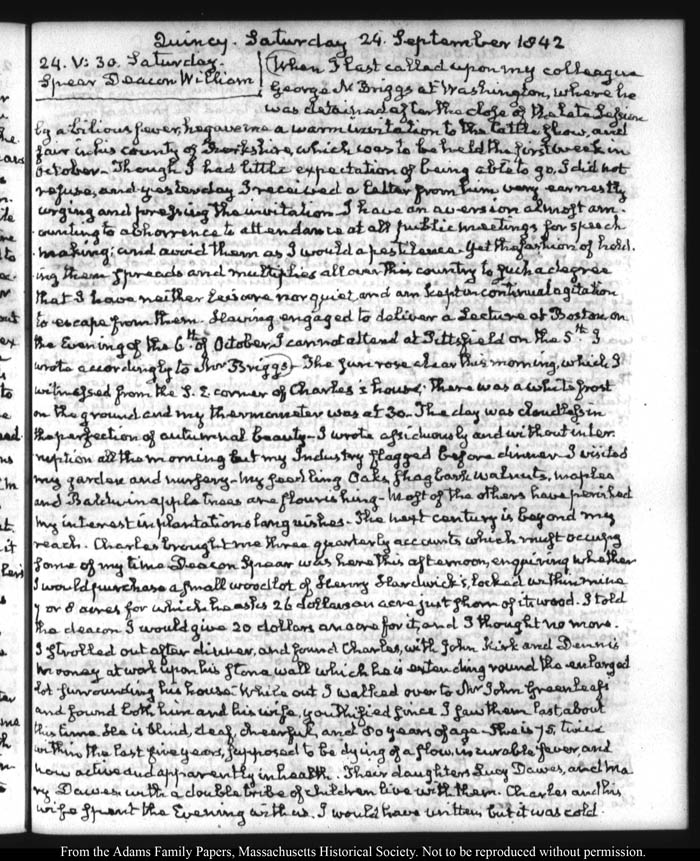 Quincy. Saturday 24. September 1842
24. V: 30. Saturday.
Spear Deacon William
When I last called upon my colleague
George N Briggs at Washington, where he
was detained after the close of the late Session
by a bilious fever, he gave me a warm invitation to the Cattle show, and
fair in his county of Berkshire, which was to be held the first week in
October— Though I had little expectation of being able to go, I did not
refuse, and yesterday I received a letter from him very earnestly
urging and pressing the invitation— I have an aversion almost am-
ounting to abhorrence to attendance at all public meetings for speech-
making; and avoid them as I would a pestilence. Yet the fashion of hold-
ing them spreads and multiplies all over this country to such a degree
that I have neither leisure nor quiet, and am kept in continual agitation
to escape from them. Having engaged to deliver a Lecture at Boston on
the Evening of the 6th of October, I cannot attend at Pittsfield on the 5th. I
wrote accordingly to Mr Briggs) The Sun rose clear this morning, which I
witnessed from the S. E corner of Charles's house. There was a white frost
on the ground and my thermometer was at 30. The day was cloudless in
the perfection of autumnal beauty— I wrote assiduously and without inter-
ruption all the morning but my Industry flagged before dinner. I visited
my garden and nursery— My seedling Oaks, shagbark walnuts, maples
and Baldwin apple trees are flourishing— Most of the others have perished
My interest in plantations languishes— The next century is beyond my
reach. Charles brought me three quarterly accounts which must occupy
some of my time Deacon Spear was here this afternoon, enquiring whether
I would purchase a small woodlot of Henry Hardwick's, locked within mine
7 or 8 acres for which he asks 26 dollars an acre just shorn of its wood. I told
the deacon I would give 20 dollars an acre for it, and I thought no more.
I strolled out after dinner, and found Charles, with John Kirk and Dennis
Mooney at work upon his stone wall which he is extending round the enlarged
lot surrounding his house— While out I walked over to Mr John Greenleaf's
and found both him and his wife, youthified since I saw them last about
this time. He is blind, deaf, cheerful, and 80 years of age— She is 75, twice
within the last five years, supposed to be dying of a slow, incurable fever, and
now active and apparently in health. Their daughters Lucy Dawes, and Ma-
ry Dawes. with a double tribe of children live with them. Charles and his
wife spent the Evening with us. I would have written but it was cold.
From the Adams Family Papers, Massachusetts Historical Society. Not to be reproduced without permission.